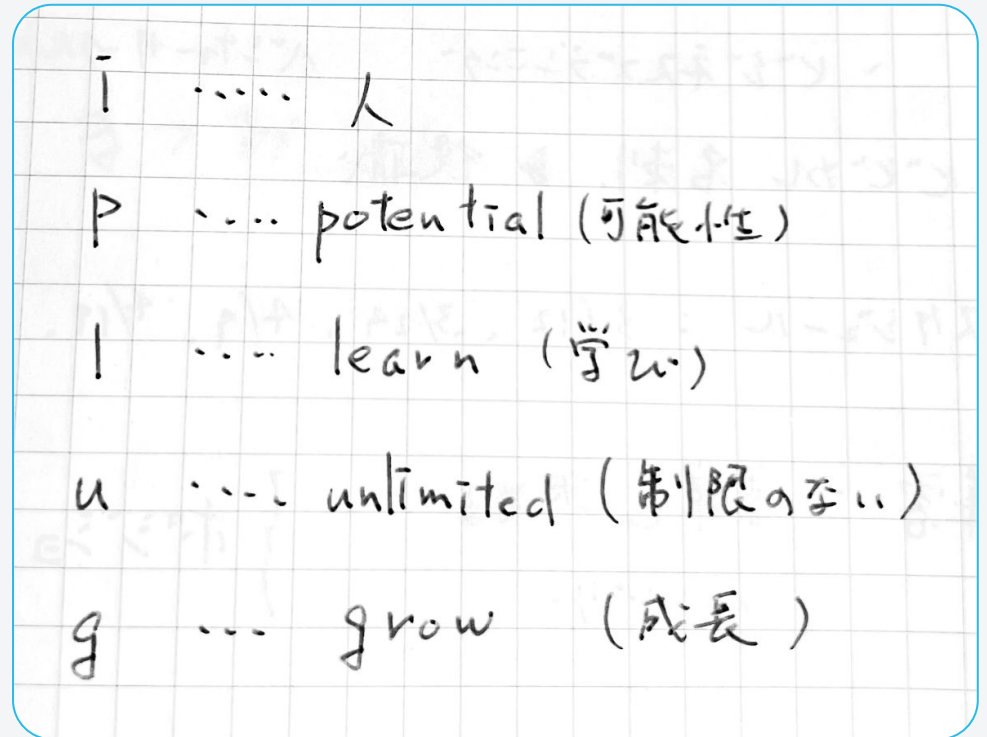 i ..... 人
p ..... potential (可能性)
l ..... learn (学び)
u ..... unlimited (制限のない)
g ... grow (成長)